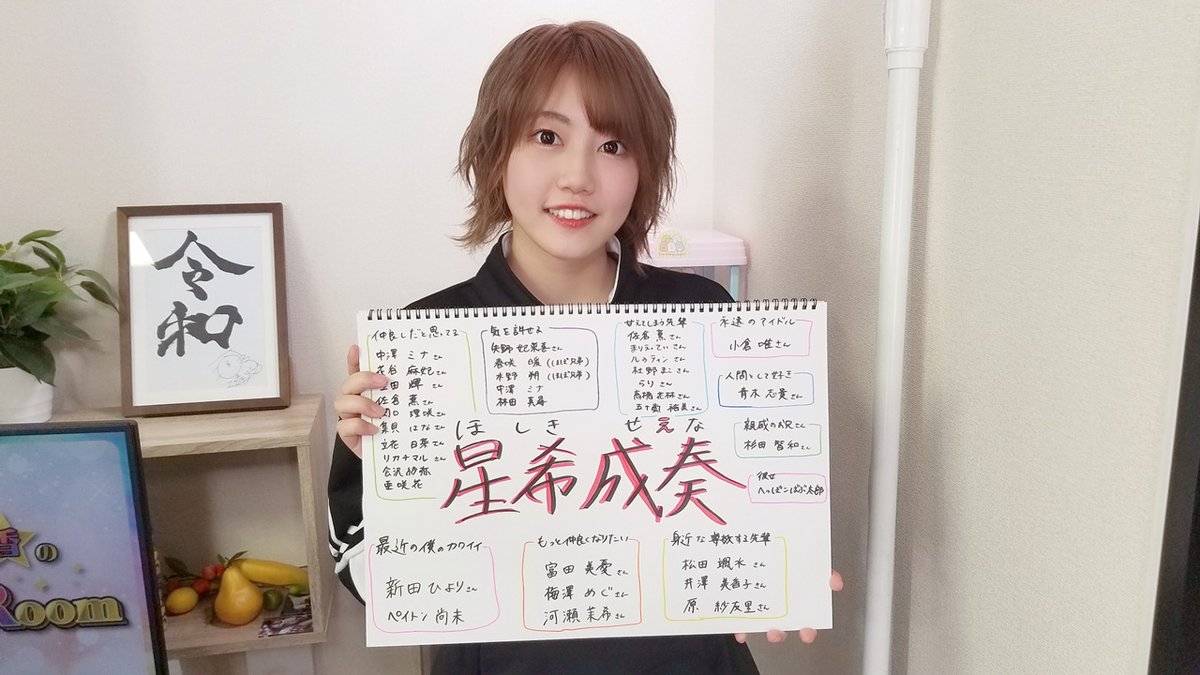 令和
仲良しだと思ってる
中澤 ミナさん
花谷 麻妃さん
立田 輝さん
佐倉 薫さん
関口 理咲さん
集貝 はなさん
立花 日菜さん
リカチマル さん
会沢 紗弥
亜咲花
気を許せる
矢野 妃菜喜さん
春咲 暖 (ほぼ兄弟)
水野 朔 (ほぼ兄弟)
中澤 ミナ
林田 真尋
甘えてしまう先輩
佐倉 薫さん
まりえってぃ さん
ルゥティン さん
社野 まこ さん
らり さん
高橋 花林さん
五十嵐 裕美さん
永遠のアイドル
小倉 唯さん
人間として好き
青木 志貴さん
親戚のお兄さん
杉田 智和さん
彼女
へっぽこぱぶ太郎
ほしき せえな
星希成奏
最近の僕のカワイイ
新田 ひよりさん
ペイトン 尚未
もっと仲良くなりたい
富田 美憂さん
梅澤 めぐさん
河瀬 茉希さん
身近な尊敬する先輩
松田 颯水さん
井澤 美香子さん
原 紗友里さん
香の
Room